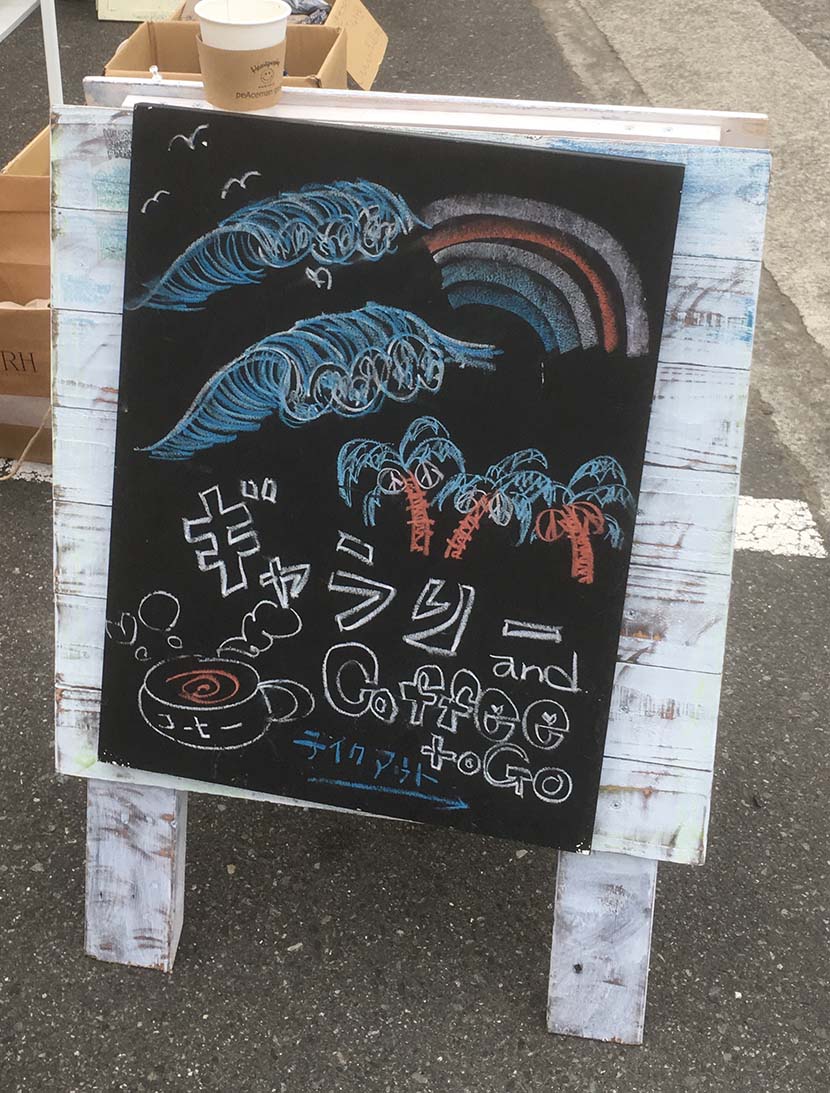 peAceman
RH
ギャラリー
and
Coffee
to Go
コーヒー
テイクアウト